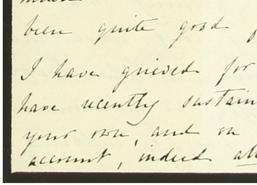 been quite good
I have grieved for
have recently sustain
your own, and on
account, indeed